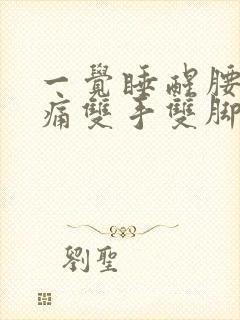 一覺睡醒腰
痛雙手雙脚
劉聖